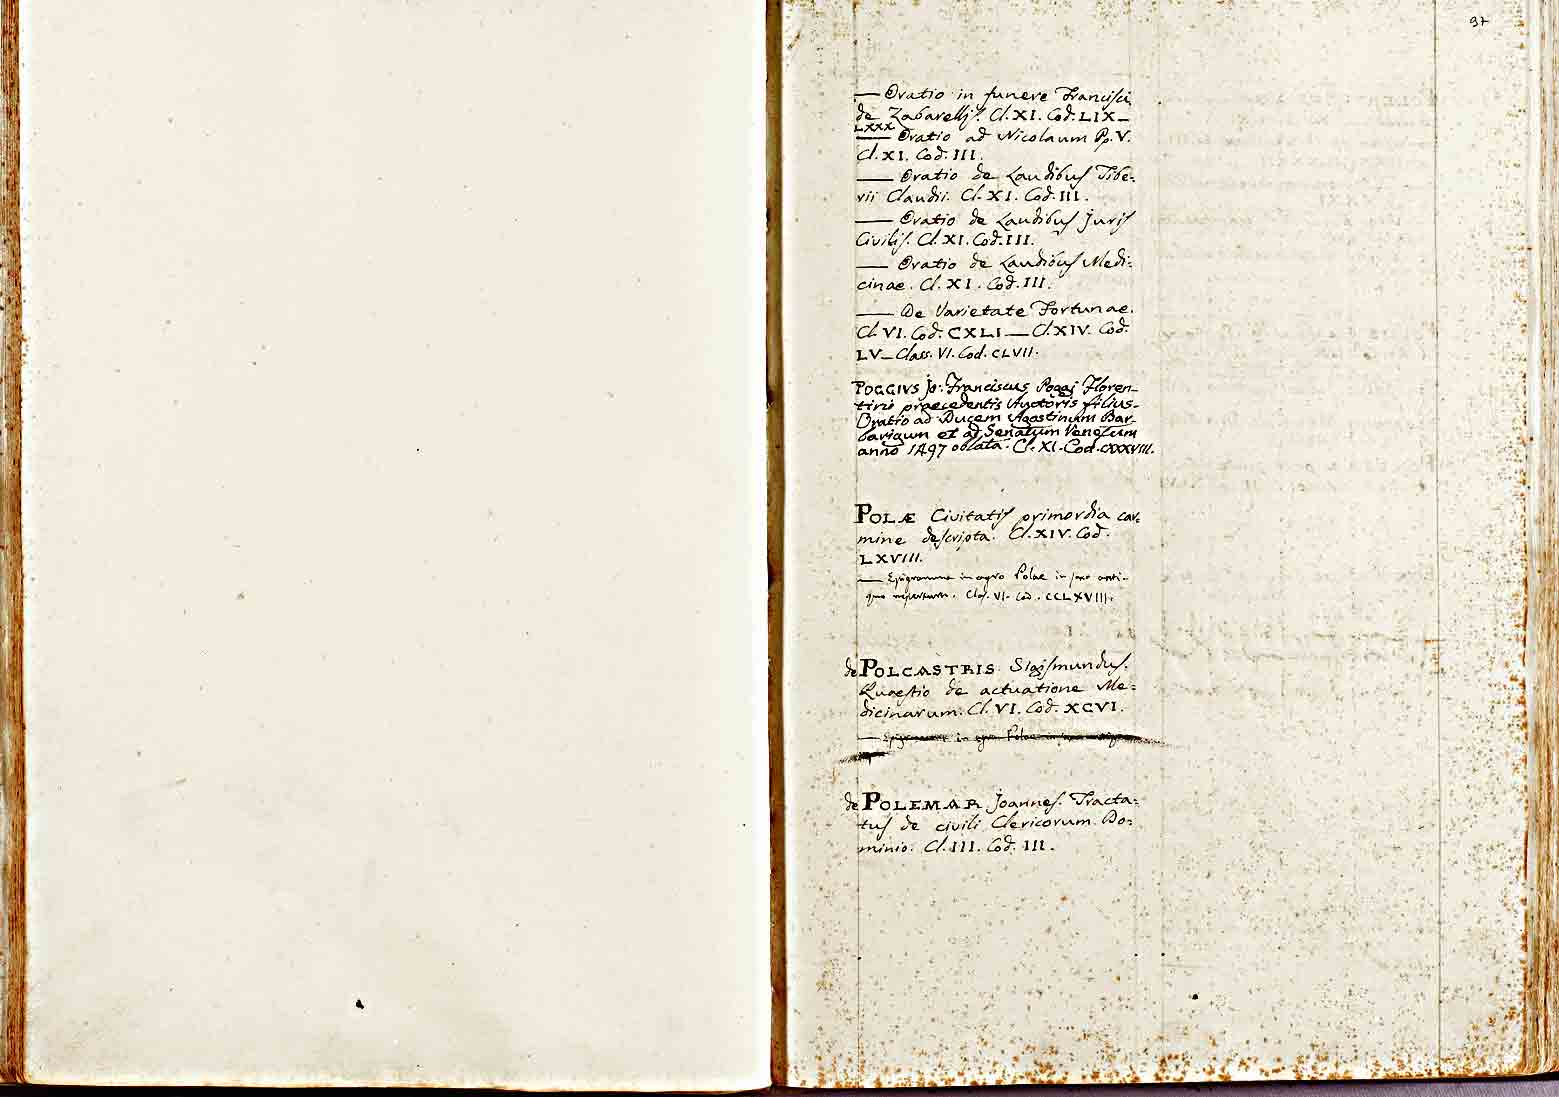 97
— Oratio in funere Francisci
de Zabarellis. Cl. XI. Cod. LIX_
LXXX
— Oratio ad Nicolaum Pp. V.
Cl. XI. Cod. III.
— Oratio de Laudibus Tibe:
rii Claudii. Cl. XI. Cod. III.
— Oratio de Laudibus Juris
Civilis. Cl. XI. Cod. III.
— Oratio de Laudibus Medi:
cinae. Cl. XI. Cod. III.
— De Varietate Fortunae.
Cl. VI. Cod. CXLI — Cl. XIV. Cod.
LV_ Class. VI. Cod. CLVII.
POGGIVS Jo: Franciscus Poggj Floren_
tini praecedentis Auctoris filius.
Oratio ad Ducem Agostinum Bar_
barigum et ad Senatum Venetum
anno 1497 oblata. Cl. XI. Cod. CXXXVIII.
POLÆ Civitatis primordia car:
mine descripta. Cl. XIV. Cod.
LXVIII.
— Epigramma in agro Polae in saxo anti_
quo repertum. Clas. VI. Cod. CCLXVIII.
de POLCASTRIS Sigismundus.
Quaestio de actuatione Me:
dicinarum. Cl. VI. Cod. XCVI.
— Epigramma in agro Polae in saxo
de POLEMAR Joannes. Tracta:
tus de civili Clericorum Do:
minio. Cl. III. Cod. III.